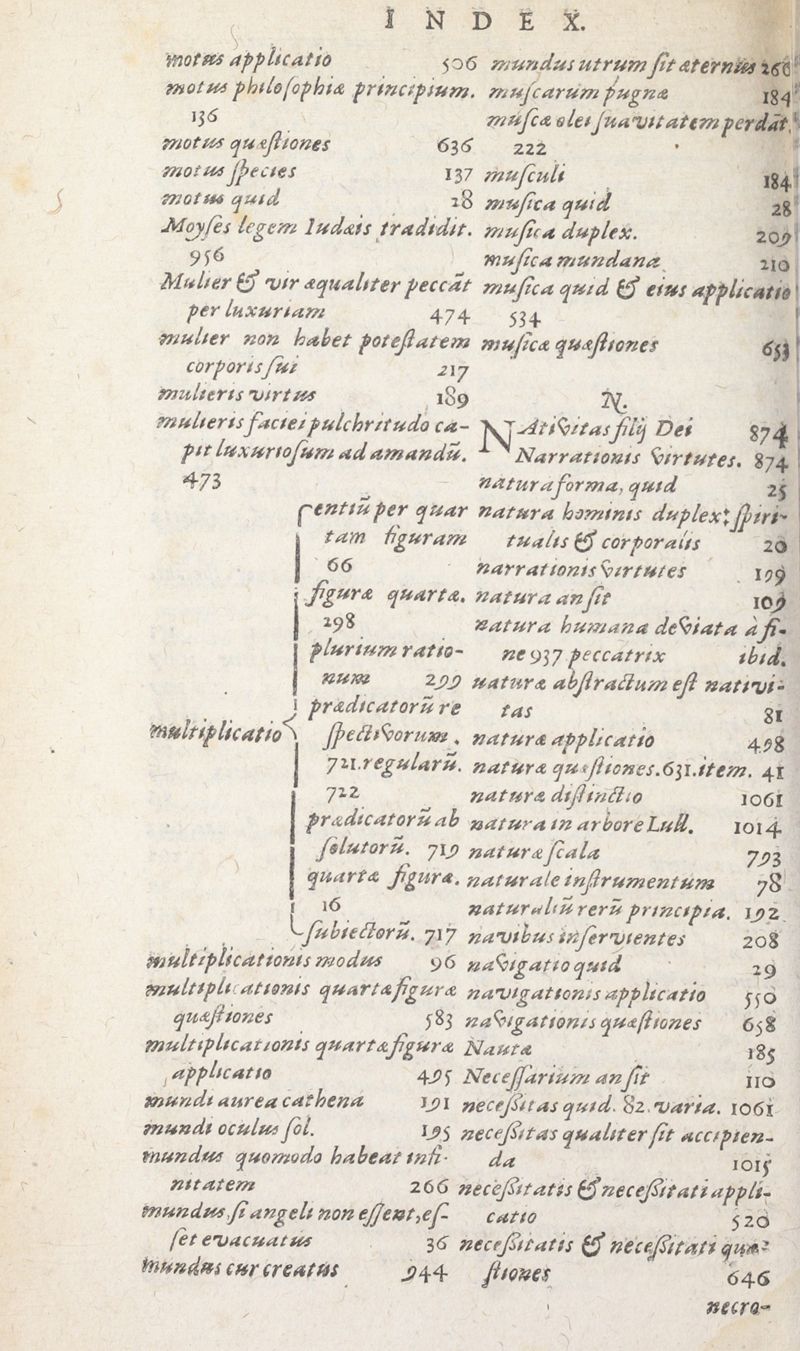 INDEX.
motus applicatio 506
motus philosophiæ principium.
136
motus quæstiones 636
motus species 137
motus quid 28
Moyses legem Iudæis tradidit.
956
Mulier & vir æqualiter peccāt
per luxuriam 474
mulier non habet potestatem
corporis sui 217
mulieris virtus 189
mulieris faciei pulchritudo ca-
pit luxuriosum ad amandū.
473
multiplicatio
entiū per quar
tam figuram
66
figuræ quartæ.
298
plurium ratio-
num 299
prædicatorū re
spectivorum.
721. regularū.
722
prædicatorū ab
solutorū. 719
quartæ figuræ.
16
subiectorū. 717
multiplicationis modus 96
multiplicationis quartæ figuræ
quæstiones 583
multiplicationis quartæ figuræ
applicatio 495
mundi aurea cathena 191
mundi oculus sol. 195
mundus quomodo habeat infi-
nitatem 266
mundus, si angeli non essent, es-
set evacuatus 36
mundus cur creatus 944
mundus utrum sit æternus 266
muscarum pugna 184
muscæ olei suavitatem perdāt
222
musculi 184
musica quid 28
musica duplex. 209
musica mundana 210
musica quid & eius applicatio
534
musicæ quæstiones 653
N.
NAtivitas filij Dei 874
Narrationis virtutes. 874
natura forma, quid 25
natura hominis duplex: spiri-
tualis & corporalis 20
narrationis virtutes 199
natura an sit 109
natura humana deviata à fi-
ne 937 peccatrix ibid.
naturæ abstractum est nativi-
tas 81
naturæ applicatio 498
naturæ quæstiones. 631. item. 41
naturæ distinctio 1061
natura in arbore Lull. 1014
naturæ scala 793
naturale instrumentum 78
naturaliū rerū principia. 192
navibus inservientes 208
navigatio quid 29
navigationis applicatio 550
navigationis quæstiones 658
Nauta 185
Necessarium an sit 110
necessitas quid. 82. varia. 1061
necessitas qualiter sit accipien-
da 1015
necessitatis & necessitati appli-
catio 520
necessitatis & necessitati quæ-
stiones 646
necro-